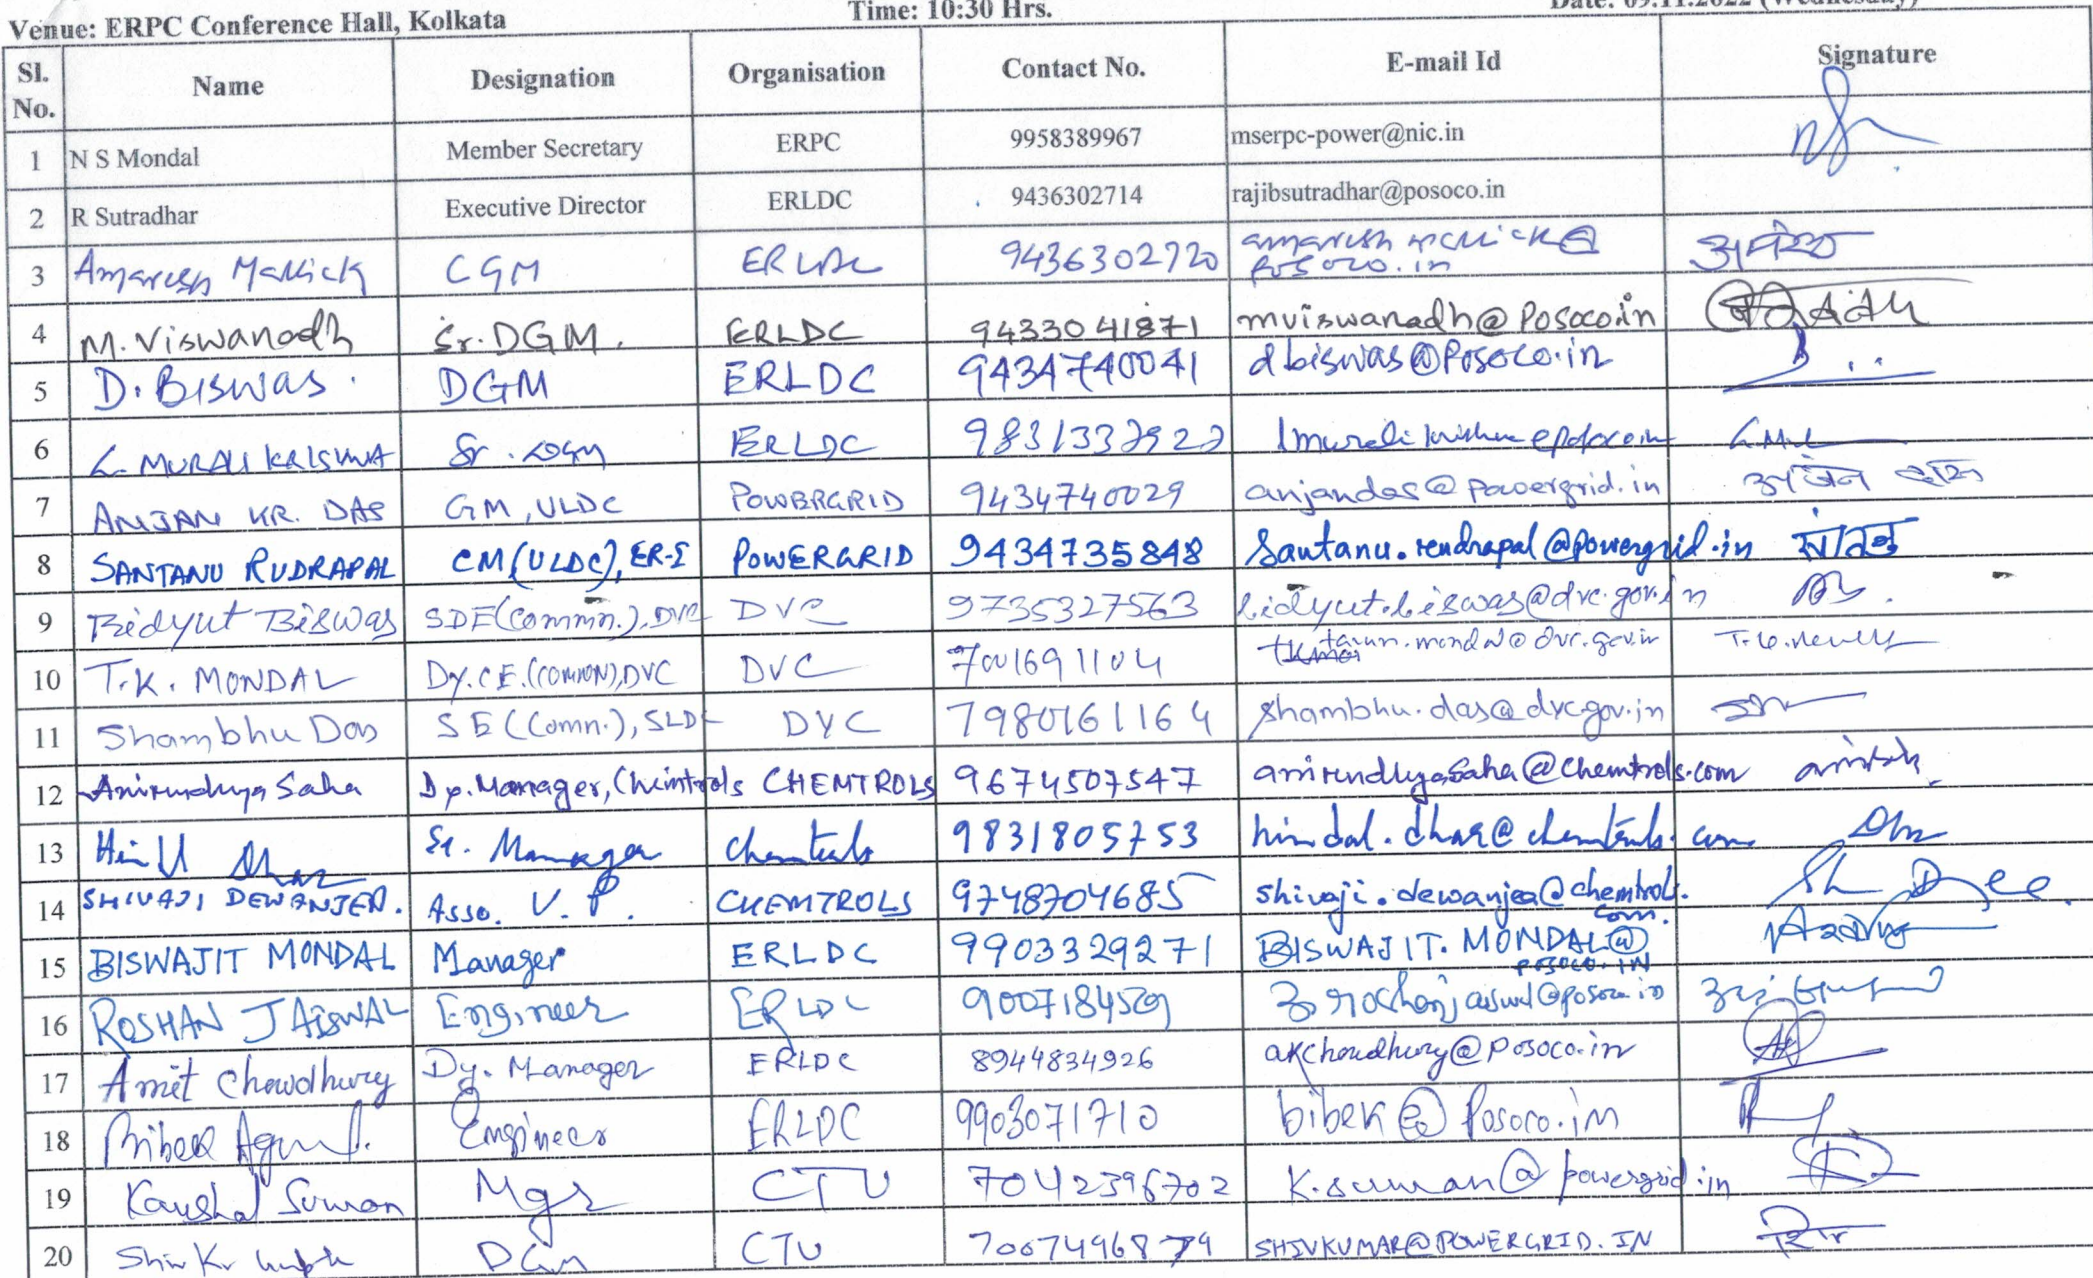 Venue: ERPC Conference Hall, Kolkata Time: 10:30 Hrs. Date: 09.11.2022 (Wednesday)
Sl. No. Name Designation Organisation Contact No. E-mail Id Signature
1 N S Mondal Member Secretary ERPC 9958389967 mserpc-power@nic.in
2 R Sutradhar Executive Director ERLDC 9436302714 rajibsutradhar@posoco.in
3 Amaresh Mallick CGM ERLDC 9436302720 amaresh mallick@
posoco.in
4 M. Viswanadh Sr. DGM. ERLDC 9433041871 mviswanadh@posoco.in
5 D. BISWAS. DGM ERLDC 9434740041 dbiswas@posoco.in
6 L. MURALI KRISHNA Sr. DGM ERLDC
7 ANJAN KR. DAS GM, ULDC POWERGRID 9434740029 anjandas@powergrid.in अंजन दास
8 SANTANU RUDRAPAL CM(ULDC), ER-I POWERGRID 9434735848 Santanu.rudrapal@powergrid.in
9 Bidyut Biswas SDE(Commn.), DVC DVC 9735327563 bidyut.biswas@dvc.gov.in
10 T.K. MONDAL Dy.CE.(COMMN),DVC DVC 7001691104 tarun.mondal@dvc.gov.in
11 Shambhu Das SE (Comn.), SLDC DVC 7980161164 shambhu.das@dvc.gov.in
12 Anirudhya Saha Dy. Manager, Chemtrols CHEMTROLS 9674507547 anirudhya.saha@chemtrols.com
13 Sr. Manager Chemtrols 9831805753 hindal.dhar@chemtrols.com
14 SHIVAJI DEWANJEE. Asso. V.P. CHEMTROLS 9748704685 shivaji.dewanjee@chemtrols.
com.
15 BISWAJIT MONDAL Manager ERLDC 9903329271 BISWAJIT.MONDAL@
POSOCO.IN
16 ROSHAN JAISWAL Engineer ERLDC roshanjaiswal@posoco.in
17 Amit Chowdhury Dy. Manager ERLDC 8944834926 akchoudhury@posoco.in
18 Bibek Engineer ERLDC 9903071710 bibek@posoco.in
19 Kaushal Suman Mgr CTU 7042396702 K.suman@powergrid.in
20 Shiv Kr DGM CTU SHIVKUMAR@POWERGRID.IN